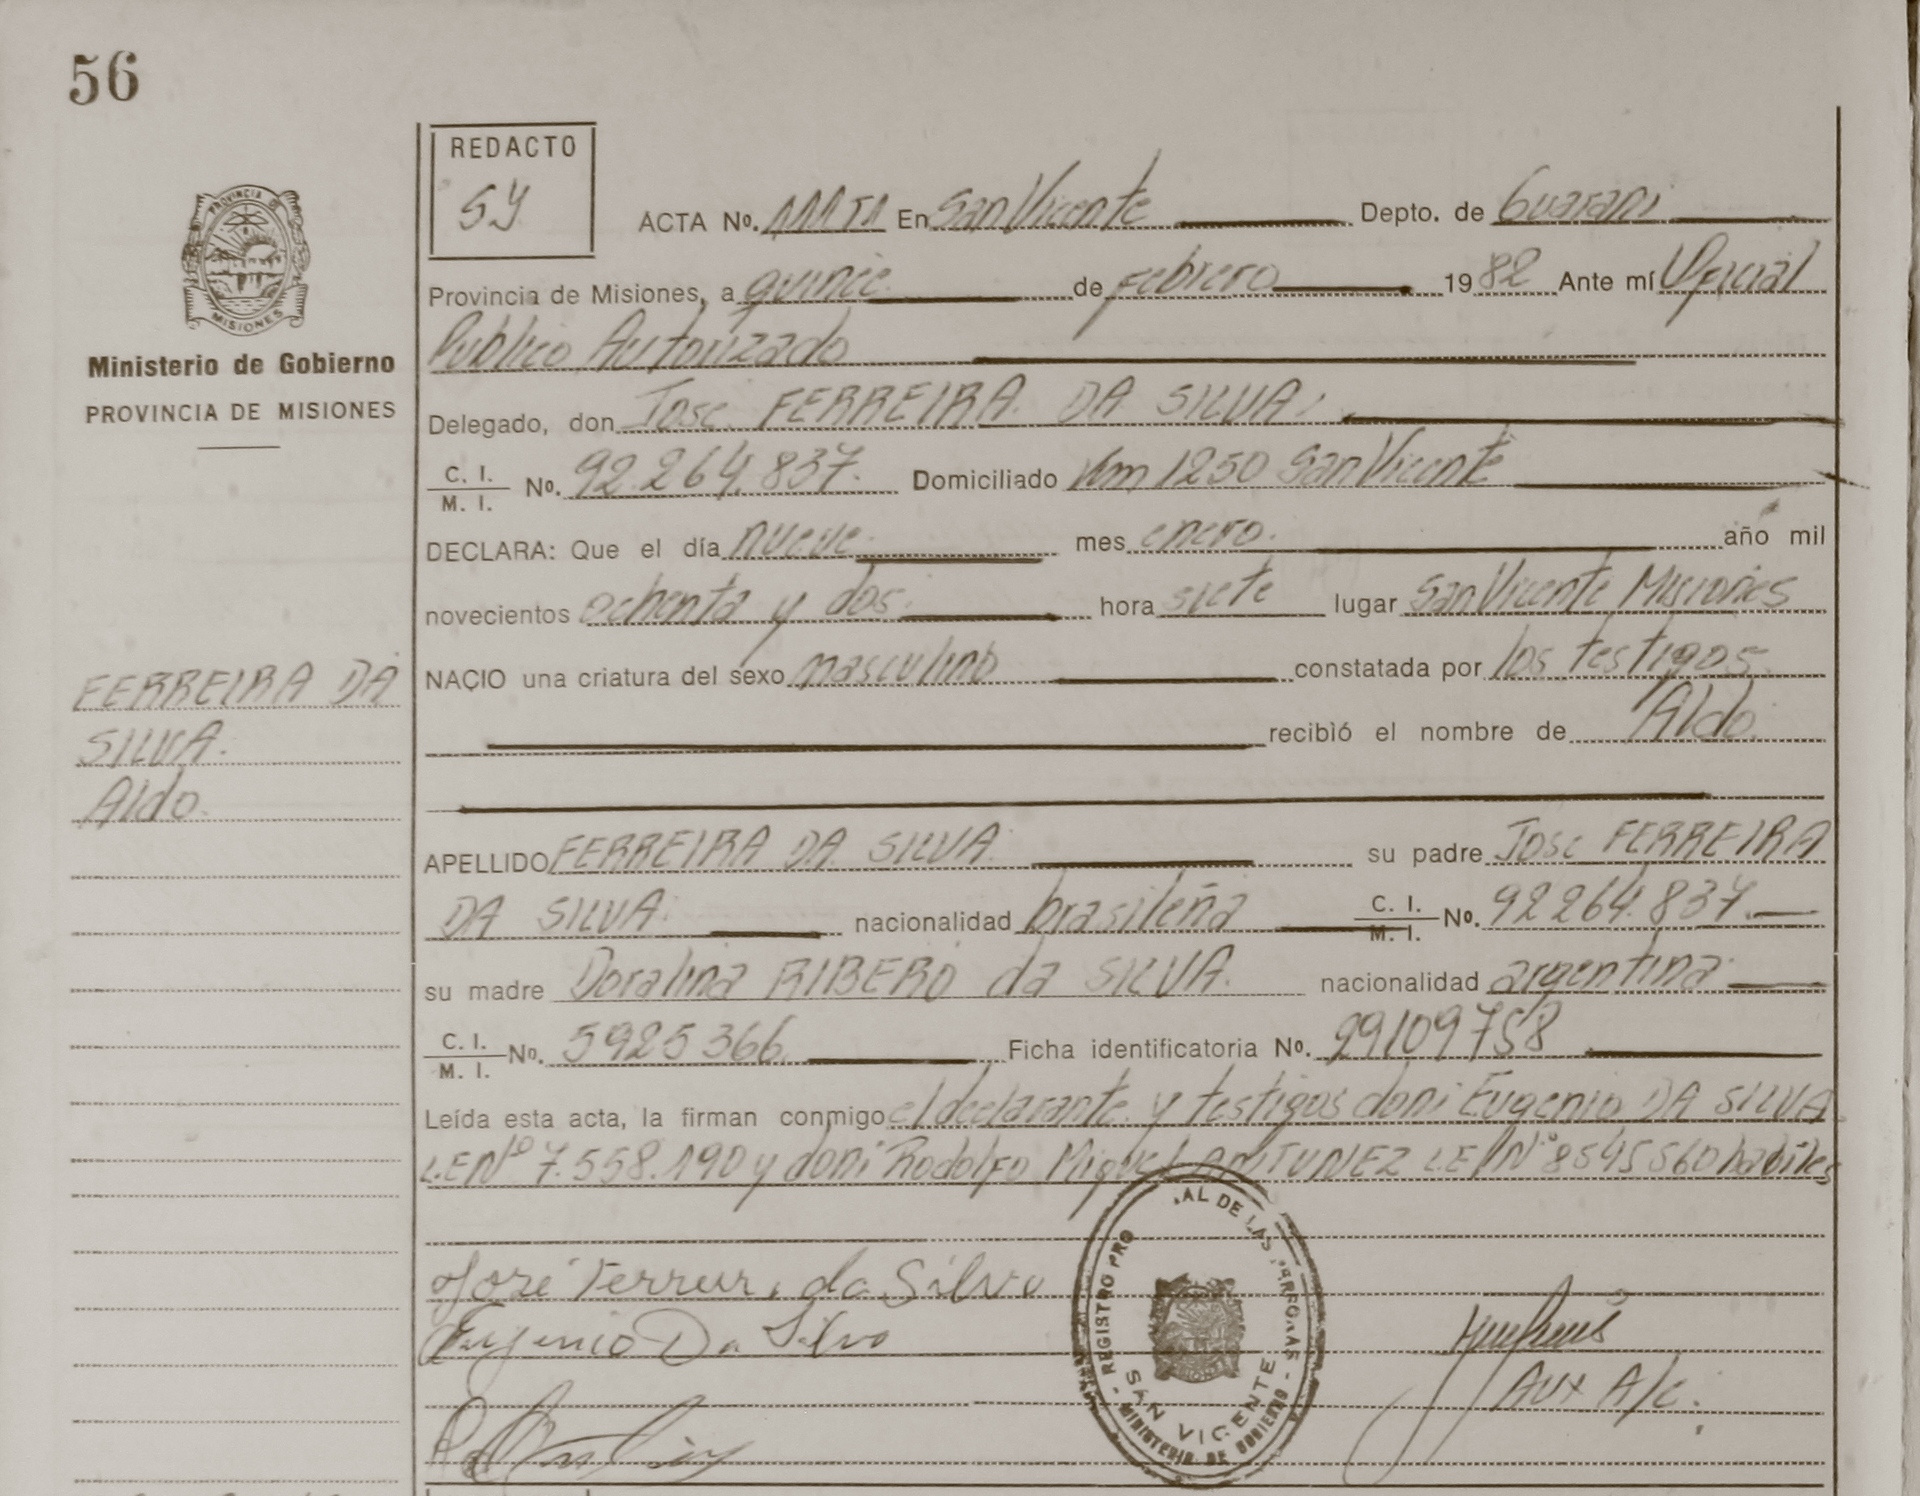 56
REDACTO
SY
PROVINCIA DE
MISIONES
Ministerio de Gobierno
PROVINCIA DE MISIONES
ACTA No. En San Vicente Depto. de Guarani
Provincia de Misiones, a quince de febrero 1982 Ante mí Oficial
Publico Autorizado
Delegado, don Jose FERREIRA DA SILVA.
C. I. / M. I. No. 92.264.837. Domiciliado Km 1250 San Vicente
DECLARA: Que el día nueve. mes enero. año mil
novecientos ochenta y dos. hora siete lugar San Vicente Misiones
NACIO una criatura del sexo masculino constatada por los testigos.
recibió el nombre de Aldo.
FERREIRA DA
SILVA.
Aldo.
APELLIDO FERREIRA DA SILVA. su padre Jose FERREIRA
DA SILVA. nacionalidad brasileña C. I. / M. I. No. 92 264.837.
su madre Doralina RIBERO da SILVA. nacionalidad argentina
C. I. / M. I. No. 5925366. Ficha identificatoria No. 29109758
Leída esta acta, la firman conmigo el declarante y testigos don: Eugenio DA SILVA
L.E Nº 7.558.190 y don: Rodolfo Miguel ANTUNEZ L.E Nº 8545560 habiles
José Ferreira da Silva
Eugenio Da Silva
Aux A/c.
REGISTRO PRO AL DE LAS PERSONAS
SAN VICENTE
MINISTERIO DE GOBIERNO